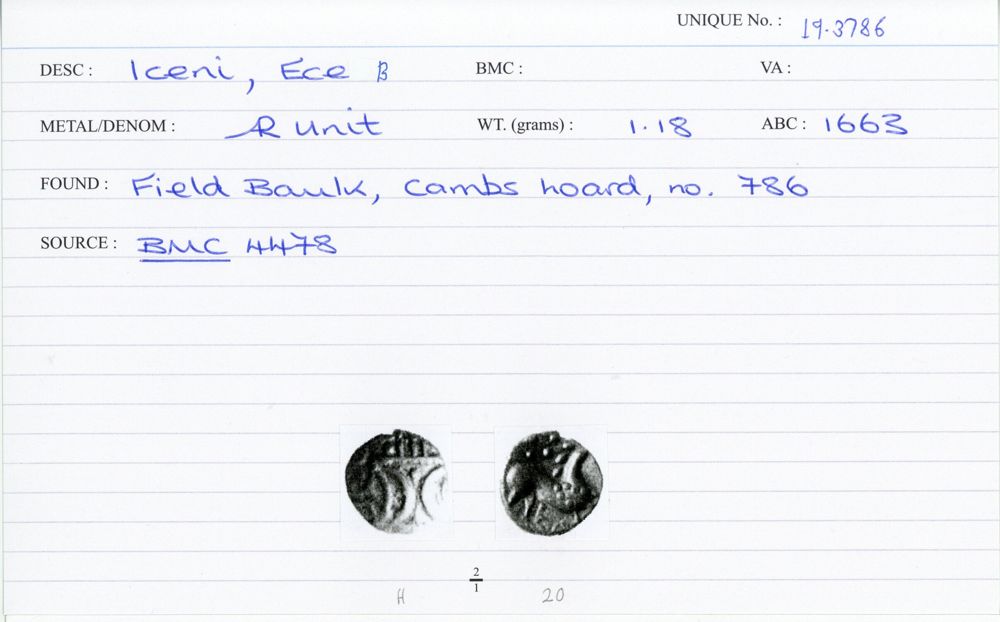 UNIQUE No. : 19.3786
DESC : Iceni, Ece B BMC : VA :
METAL/DENOM : Æ unit WT. (grams) : 1.18 ABC : 1663
FOUND : Field Baulk, Cambs hoard, no. 786
SOURCE : BMC 4478
2
1
H 20